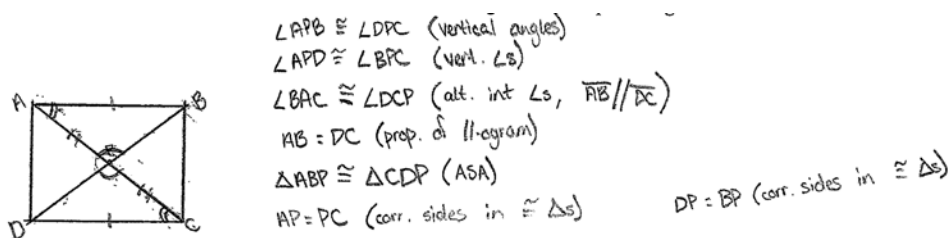 ∠APB ≅ ∠DPC (vertical angles)
∠APD ≅ ∠BPC (vert. ∠s)
∠BAC ≅ ∠DCP (alt. int ∠s, AB // DC)
AB = DC (prop. of ll-ogram)
△ABP ≅ △CDP (ASA)
AP = PC (corr. sides in ≅ △s)
DP = BP (corr. sides in ≅ △s)
A
B
D
C